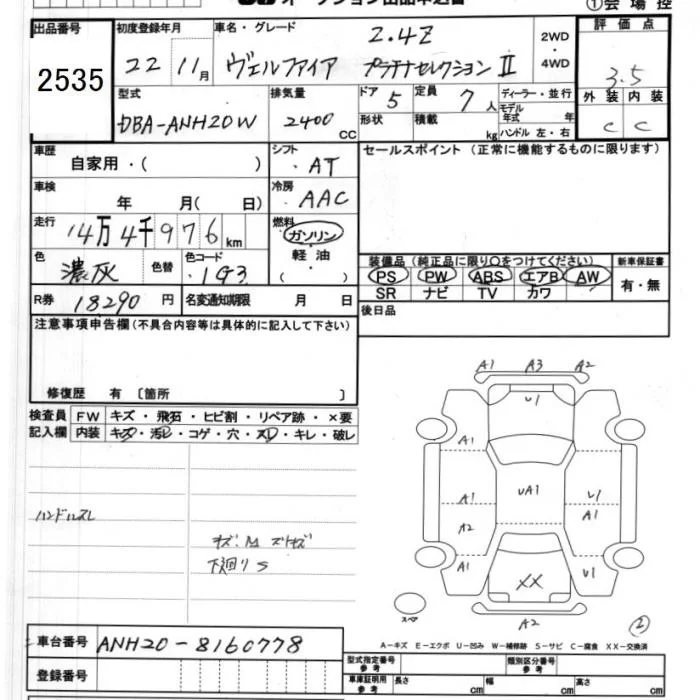 オークション出品申込書 ①会場控
出品番号 初度登録年月 車名・グレード 2.4Z 2WD・4WD 評価点
2535 22 11月 ヴェルファイア プラチナセレクションⅡ 3.5
型式 排気量 ドア 5 定員 7人 ディーラー・並行 外装 内装
DBA-ANH20W 2400 CC 形状 積載 kg モデル年式 年 ハンドル 左・右 C C
車歴 自家用・( ) シフト ・AT セールスポイント (正常に機能するものに限ります)
車検 年 月( 日) 冷房 ・AAC
走行 14万4千976km 燃料 ガソリン・軽油・( )
色 濃灰 色替 色コード ・1G3 装備品 (純正品に限り○をつけてください) 新車保証書
PS PW ABS エアB AW 有・無
SR ナビ TV カワ
R券 18290円 名変通知期限 月 日 後日品
注意事項申告欄(不具合内容等は具体的に記入して下さい)
修復歴 有 〔箇所 〕
検査員記入欄 FW キズ・飛石・ヒビ割・リペア跡・×要
内装 キズ・汚レ・コゲ・穴・スレ・キレ・破レ
ハンドルスレ
下廻りS
A1 A3 A2
U1
A1
A1 UA1 U1
A2 A1
A1 XX U1
スペア A2 ②
A-キズ E-エクボ U-凹み W-補修跡 S-サビ C-腐食 XX-交換済
車台番号 ANH20-8160778
登録番号
型式指定番号 参考 類別区分番号 参考
車庫証明用 参考 長さ cm 幅 cm 高さ cm